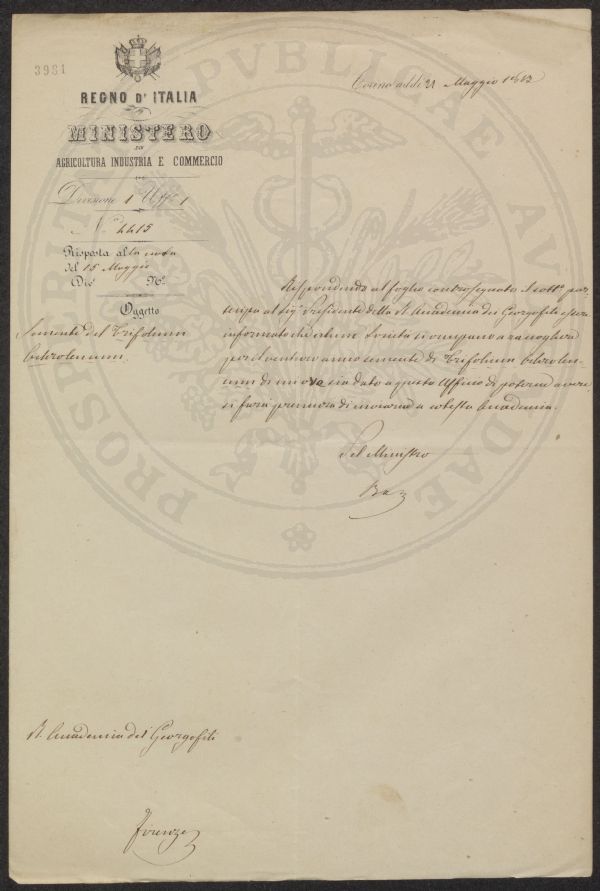 3981
REGNO D'ITALIA
MINISTERO
DI
AGRICOLTURA INDUSTRIA E COMMERCIO
Divisione 1 Uff° 1
N.° 4415
Risposta alla nota
del 15 Maggio
Div.e N.°
Oggetto
Semente del Trifolium
Torino addì 21 Maggio 1862
Rispondendo al foglio controsegnato il sott.°
al Sig.r Presidente della R. Accademia dei Georgofili
informato che alcune Società si occupano a raccogliere
per il venturo anno semente di Trifolium
di cui ove sia dato a questo Uffizio di poterne avere
si farà premura di inviarne a cotesta Accademia.
Pel Ministro
R. Accademia dei Georgofili
Firenze
PROSPERITATI PVBLICAE AVGENDAE